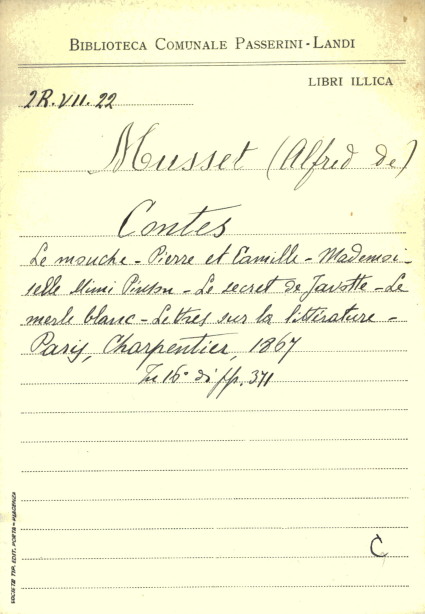 BIBLIOTECA COMUNALE PASSERINI-LANDI
LIBRI ILLICA
2R.VII.22
Musset (Alfred de)
Contes
Le mouche - Pierre et Camille - Mademoi-
selle Mimi Pinson - Le secret de Javotte - Le
merle blanc - Lettres sur la littérature -
Paris, Charpentier, 1867
In 16° di pp. 371
C
SOCIETÀ TIP. EDIT. PORTA - PIACENZA